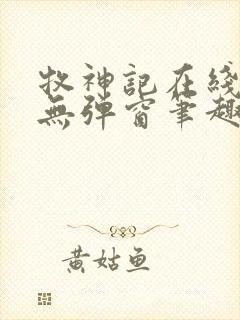 牧神記在綫
無彈窗筆趣
黃姑魚